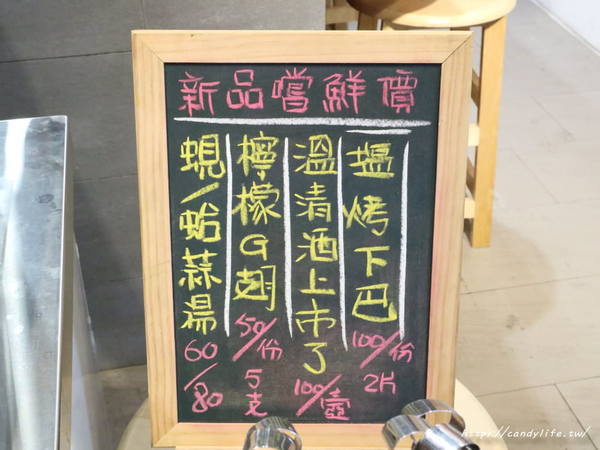 新品嚐鮮價
塩烤下巴
100/份
2片
溫清酒上市了
100/壺
檸檬G翅
50/份
5支
蜆/蛤蒜湯
60/80
https://candylife.tw/